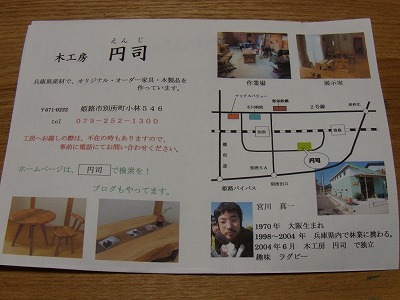 えんじ
木工房 円司
兵庫県産材で、オリジナル・オーダー家具・木製品を
作っています。
〒671-0222 姫路市別所町小林546
tel 079-252-1300
工房へお越しの際は、不在の時もありますので、
事前に電話にてお問い合わせください。
ホームページは、 円司 で検索を!
ブログもやってます。
作業場 展示室
マックスバリュー
石川病院
2号線
別所
円司
姫路バイパス
別所出口
宮川 真一
1970年 大阪生まれ
1998~2004年 兵庫県内で林業に携わる。
2004年6月 木工房 円司 で独立
趣味 ラグビー